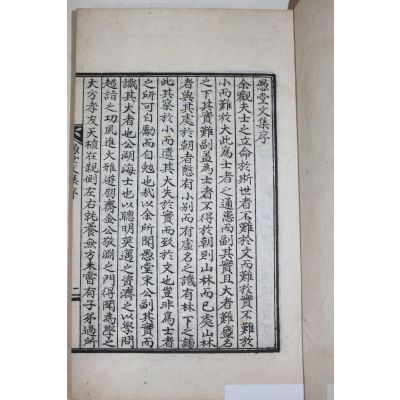 愚堂文集序
余觀夫士之立命於斯世者不難於文而難於實不難於
小而難於大此為士者之通患而副其實且大者難盛名
之下其實難副盖為士者不得於朝則山林而已處山林
者與其處於朝者懸有小別而有虛名之譏有林下之誚
此其察於小而遺其大失於實而致於文也豈非為士者
之所可自勵而自勉也哉以余所聞愚堂宋公副其實而
識其大者也公湖海士也以聰明英邁之資濟之以學問
超詣之功夙進大雅遊朋齋金公敬淵之門得聞為學之
大方孝友天植在親側左右就養無方未嘗有子弟過所
愚堂文集序